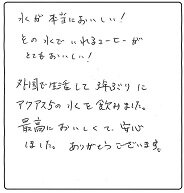 水が本当においしい!
その水でいれるコーヒーが
とてもおいしい!
外国で生活して3年ぶりに
アクアスの水を飲みました。
最高においしくて、安心
しました。ありがとうございます。